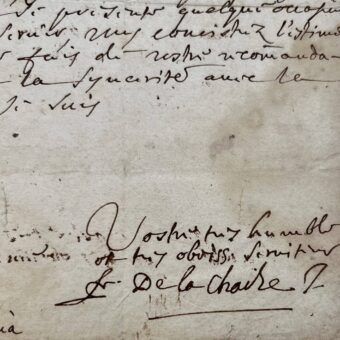 se presente quelque occasi
servir vous conoistrez l'estime
fais de vostre recomanda-
la syncerité avec le
Je suis
Vostre tres humble
et tres obeiss. serviteur
fr. De la Chaize J.